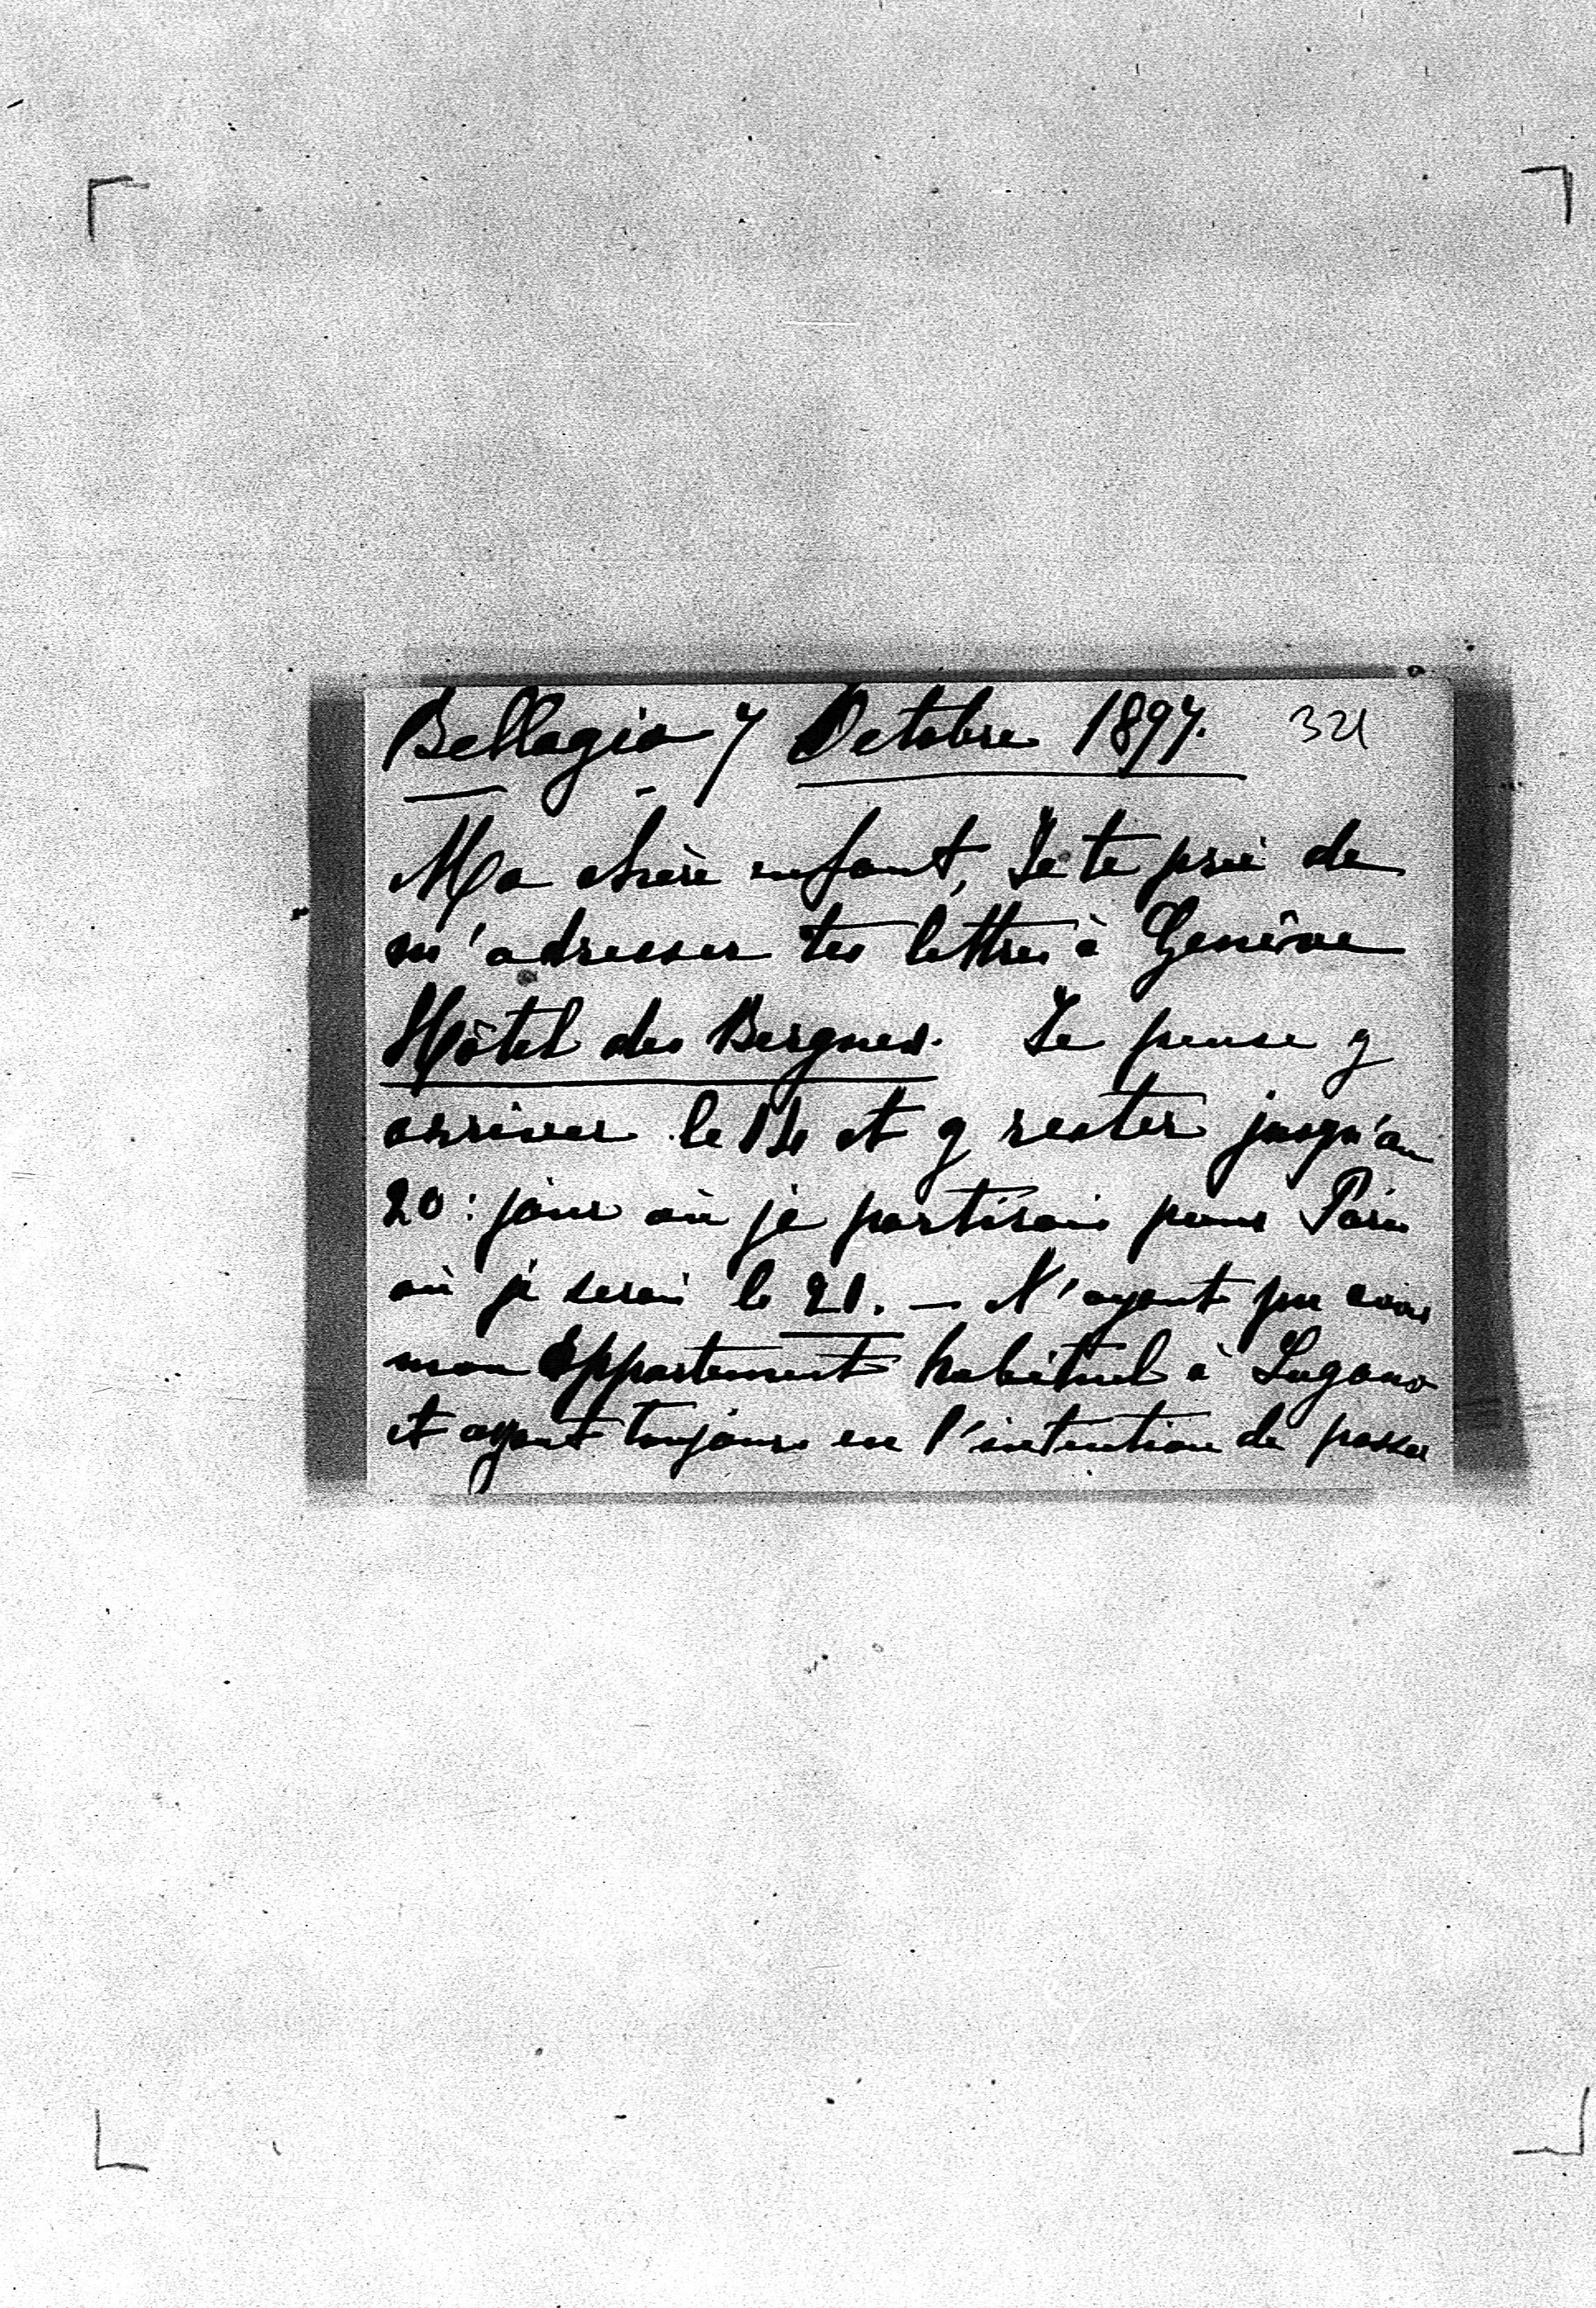 Bellagio 7 Octobre 1897. 321
Ma chère enfant, Je te prie de
m'adresser tes lettres à Genève
Hôtel des Bergues. Je pense y
arriver le 14 et y rester jusqu'au
20 : jour où je partirai pour Paris
où je serai le 21. — N'ayant pu avoir
mon Appartement habituel à Lugano
et ayant toujours eu l'intention de passer